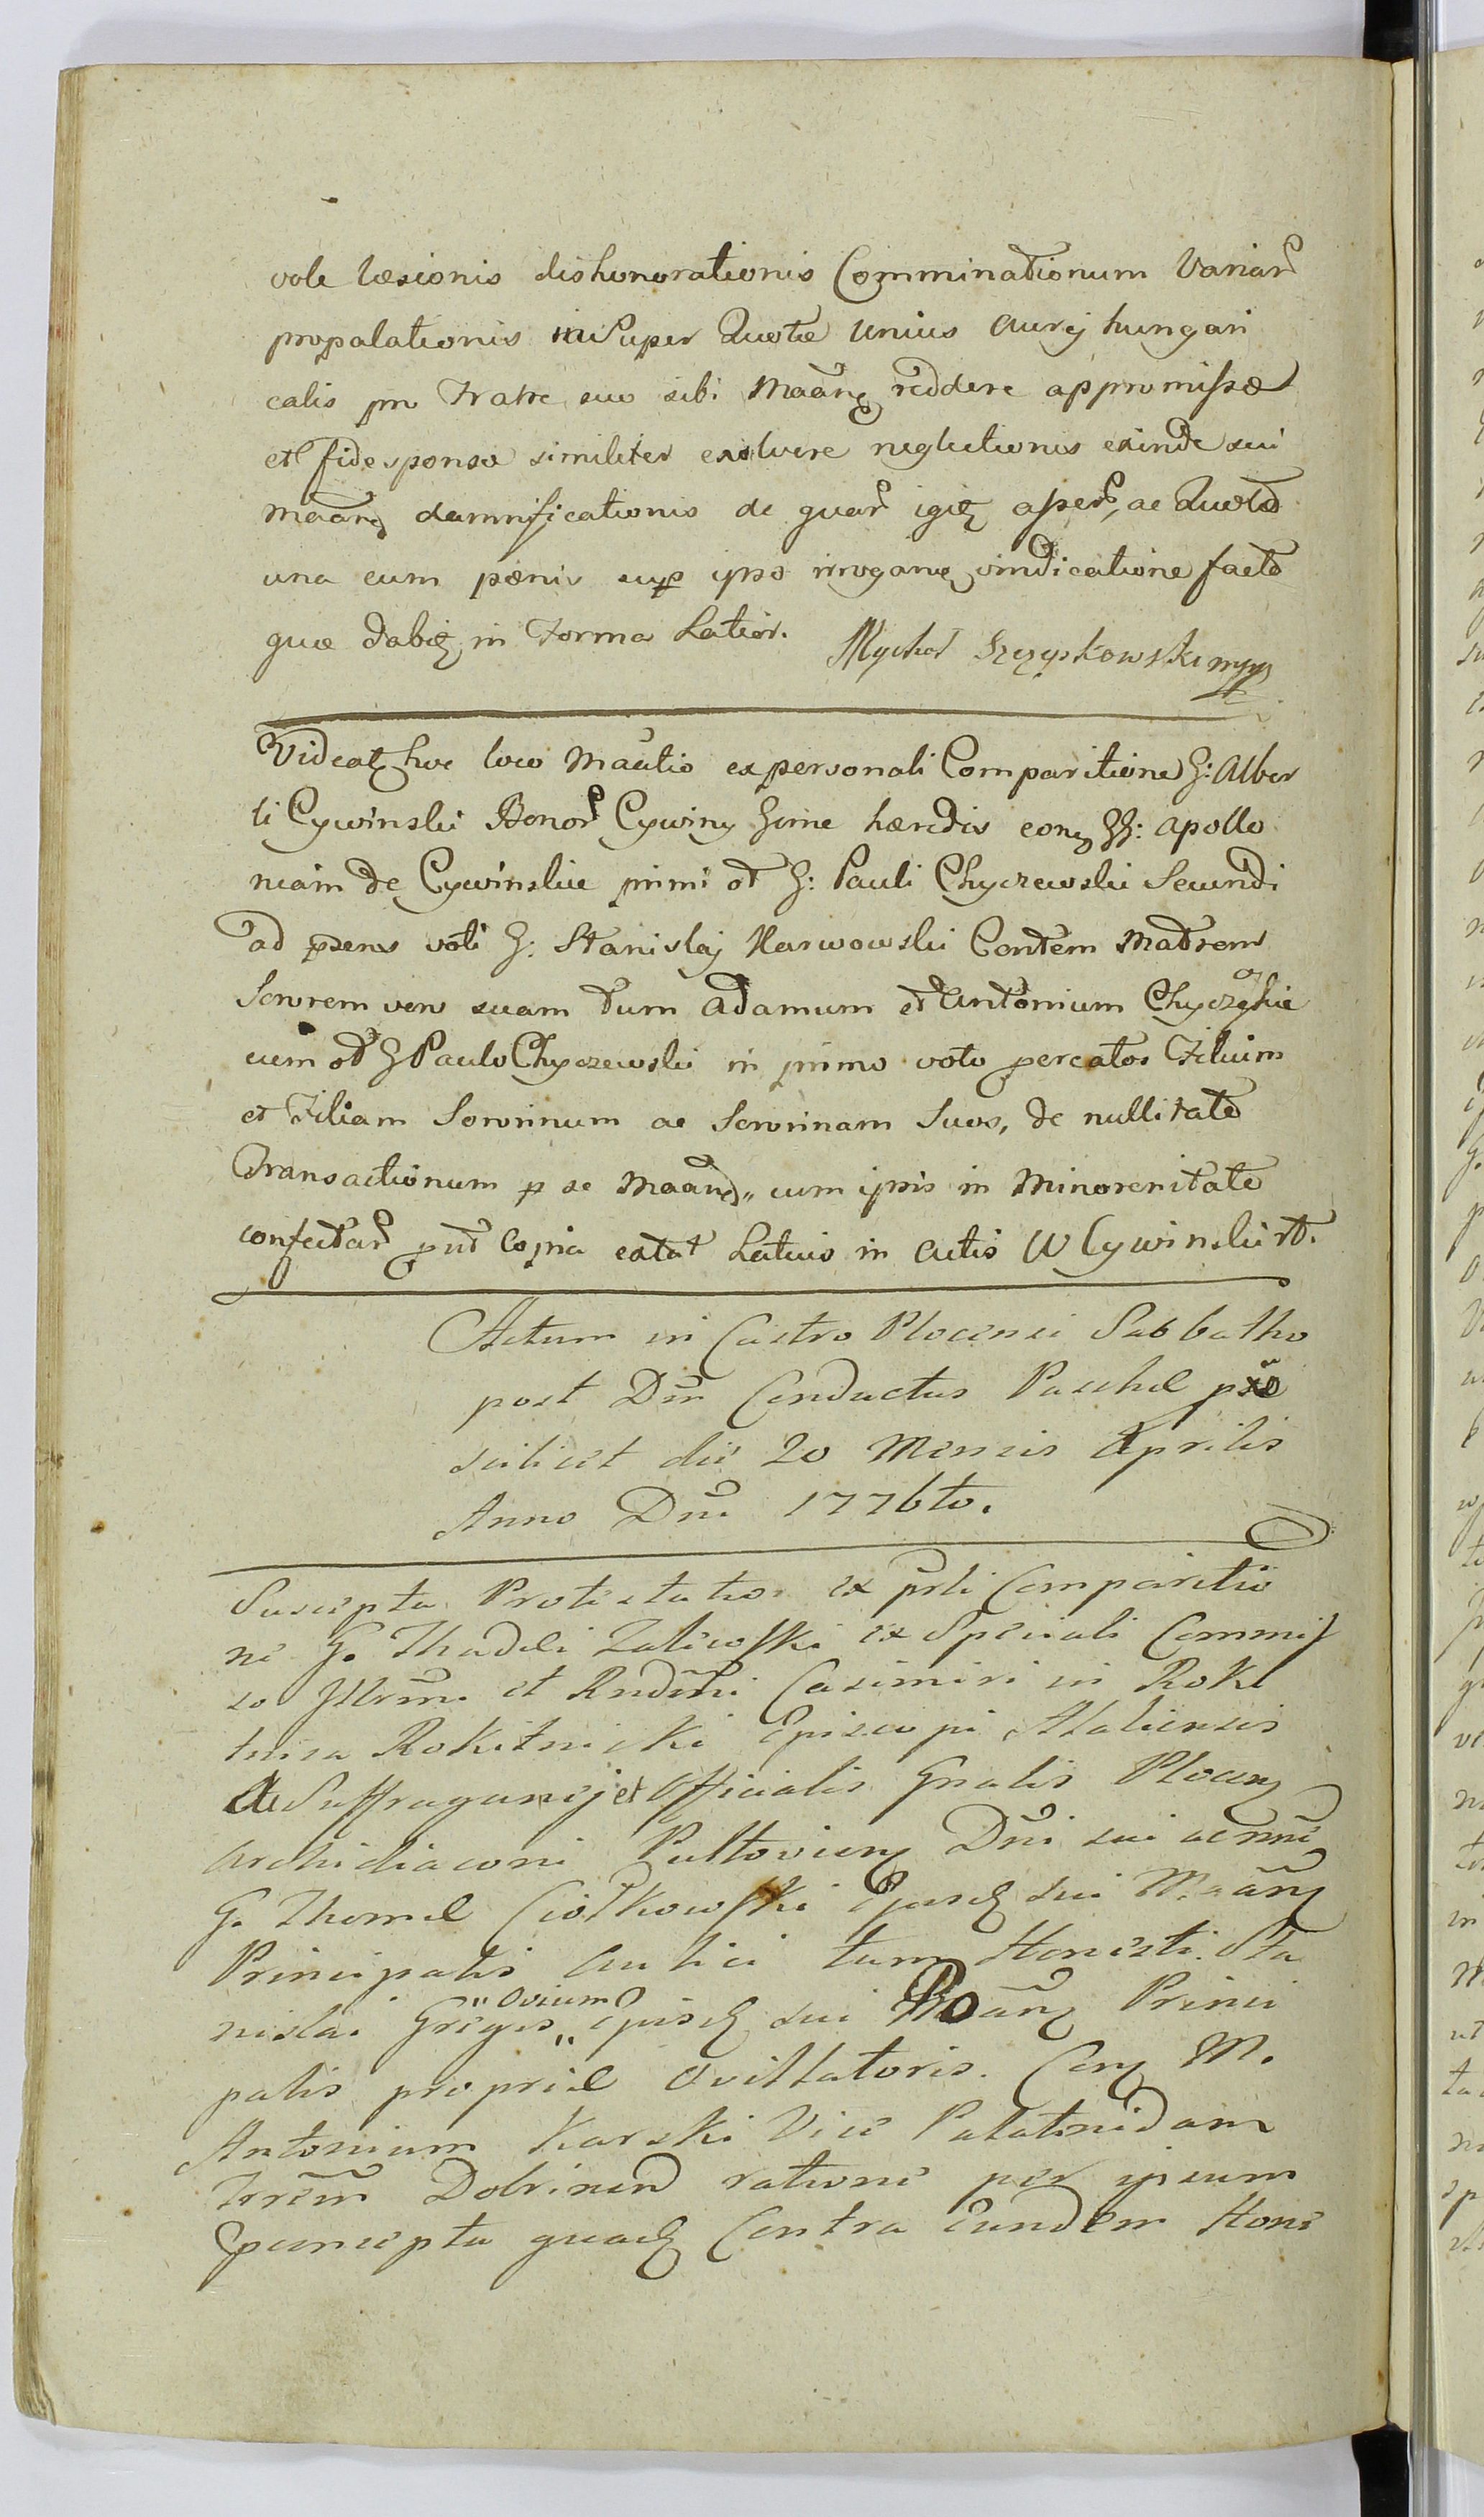 vole læsionis dishonorationis Comminationum Variar
propalationis inSuper Quotæ unius aurej hungari
calis pro Fratre suo sibi Maanq reddere appromissæ
et fide sponsæ similiter exolvere neglectionis exinde sui
Maanq damnificationis de quar igitq asser, ac Quota
una cum pænis sup ipso irroganq vindicatione facta
quæ dabitq in Forma Latior. Mychał Szczyskowski mpp
Videatq hoc loco Mactio ex personali Comparitione G: Alber
ti Cywinski Bonor Cywiny hæredis conq GG: Apollo
niam de Cywinskie primi ot G: Pauli Chyczewski Secundi
ad præns voti G: Stanislaj Karwowski Contem Matrem
Sororem vero suam tum Adamum et Antonium
cum ot G Paulo Chyczewski in primo voto percatos Filium
et Filiam Sororinum ac Sororinam Suos, de nullitate
Transactionum p se Maanq,, cum ipsis in Minorenitate
confectar put Copia extat Latius in Actis W Cywinski rt.
Actum in Castro Plocensi Sabbatho
post Dm Conductus Paschæ pxo
scilicet die 20 Mensis Aprilis
Anno Dni 1776to.
Suscepta Protestatio ex prli Comparitio
ne G. Thadei Zaliwski ex Speciali Commis
so Illrmi et Rndmi Casimiri in Roki
tnica Rokitnicki Episcopi
ac Suffraganej et Officialis Gnalis Plocenq
Archidiaconi Pultoviensq Dni sui ac nne
G. Thomæ Ciołkowski Ejusdq sui Maanq
Principalis Aulici tum Honesti Sta
nislai Gregis ,,Ovium,, Ejusdq sui Maanq Princi
palis propriæ Ovillatoris. Conq M.
Antonium Karski Vice Palatinidam
Trrem Dobrinen ratione per ipsum
percepta quadq Contra Eundem Hone